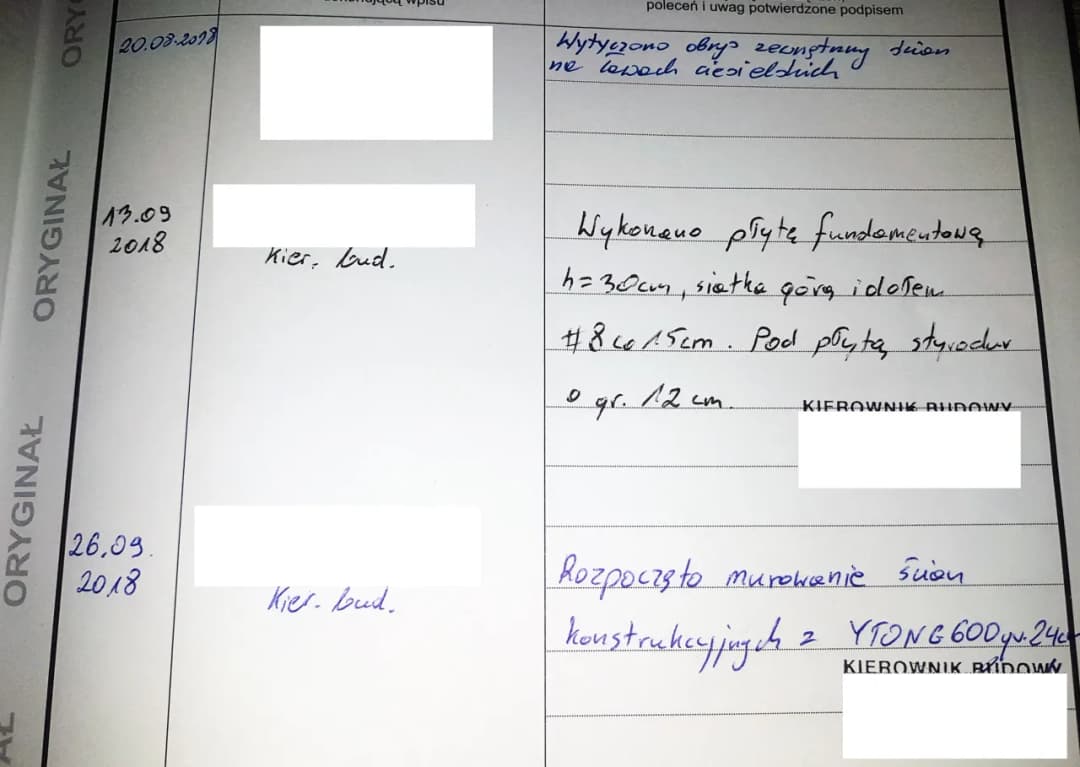 wpisu
poleceń i uwag potwierdzone podpisem
20.08.2018
Wytyczono obrys zewnętrzny ścian
na ławach ciesielskich
13.09
2018
Kier. bud.
Wykonano płytę fundamentową
h=30cm, siatka górą i dołem
#8 co 15cm. Pod płytą styrodur
o gr. 12 cm.
KIEROWNIK BUDOWY
26.09.
2018
Kier. bud.
Rozpoczęto murowanie ścian
konstrukcyjnych z YTONG 600 gr. 24cm
KIEROWNIK BUDOWY
ORYGINAŁ
ORYGINAŁ